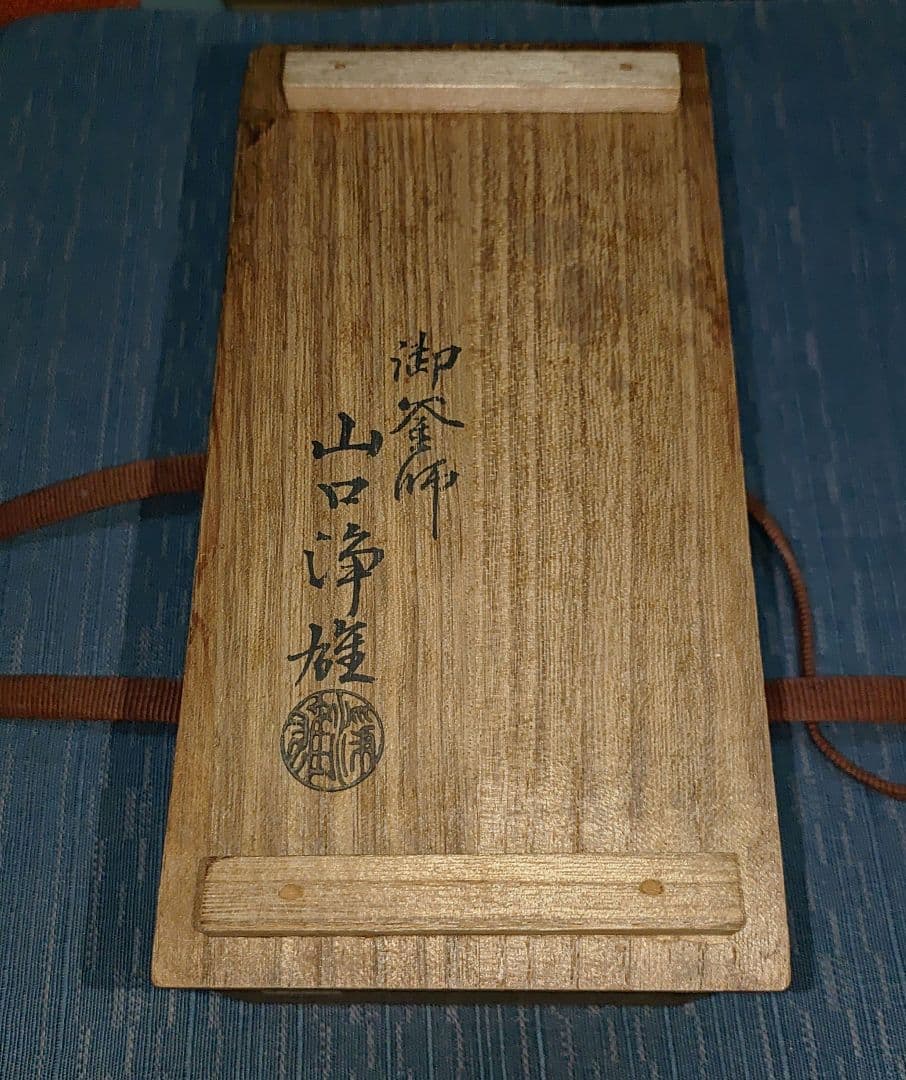 御釜師
山口浄雄